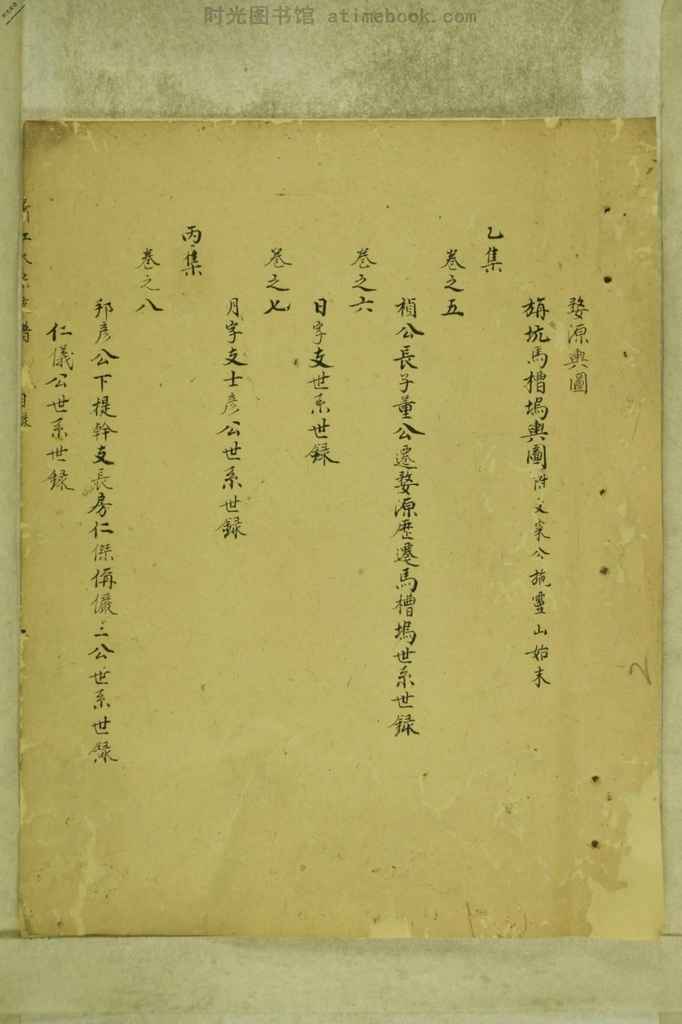 时光图书馆 atimebook.com
婺源輿圖
旃坑馬槽塢輿圖附文寀公施靈山始末
乙集
卷之五
禎公長子董公遷婺源歷遷馬槽塢世系世録
卷之六
日字支世系世録
卷之七
月字支士彥公世系世録
丙集
卷之八
邦彥公下提幹支長房仁傑偁儼三公世系世録
仁儀公世系世録
目録